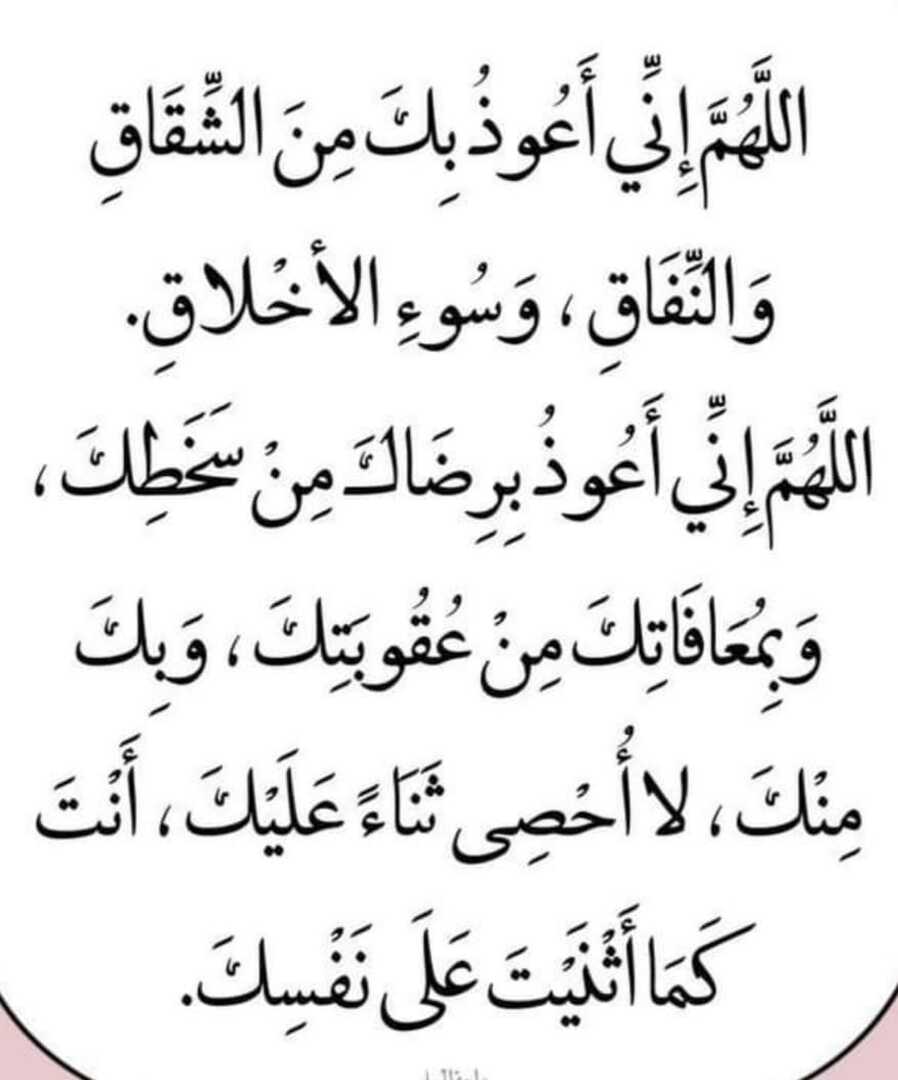 اللَّهُمَّ إِنِّي أَعُوذُ بِكَ مِنَ الشِّقَاقِ
وَالنِّفَاقِ، وَسُوءِ الأَخْلاقِ.
اللَّهُمَّ إِنِّي أَعُوذُ بِرِضَاكَ مِنْ سَخَطِكَ،
وَبِمُعَافَاتِكَ مِنْ عُقُوبَتِكَ، وَبِكَ
مِنْكَ، لا أُحْصِى ثَنَاءً عَلَيْكَ، أَنْتَ
كَمَا أَثْنَيْتَ عَلَى نَفْسِكَ.